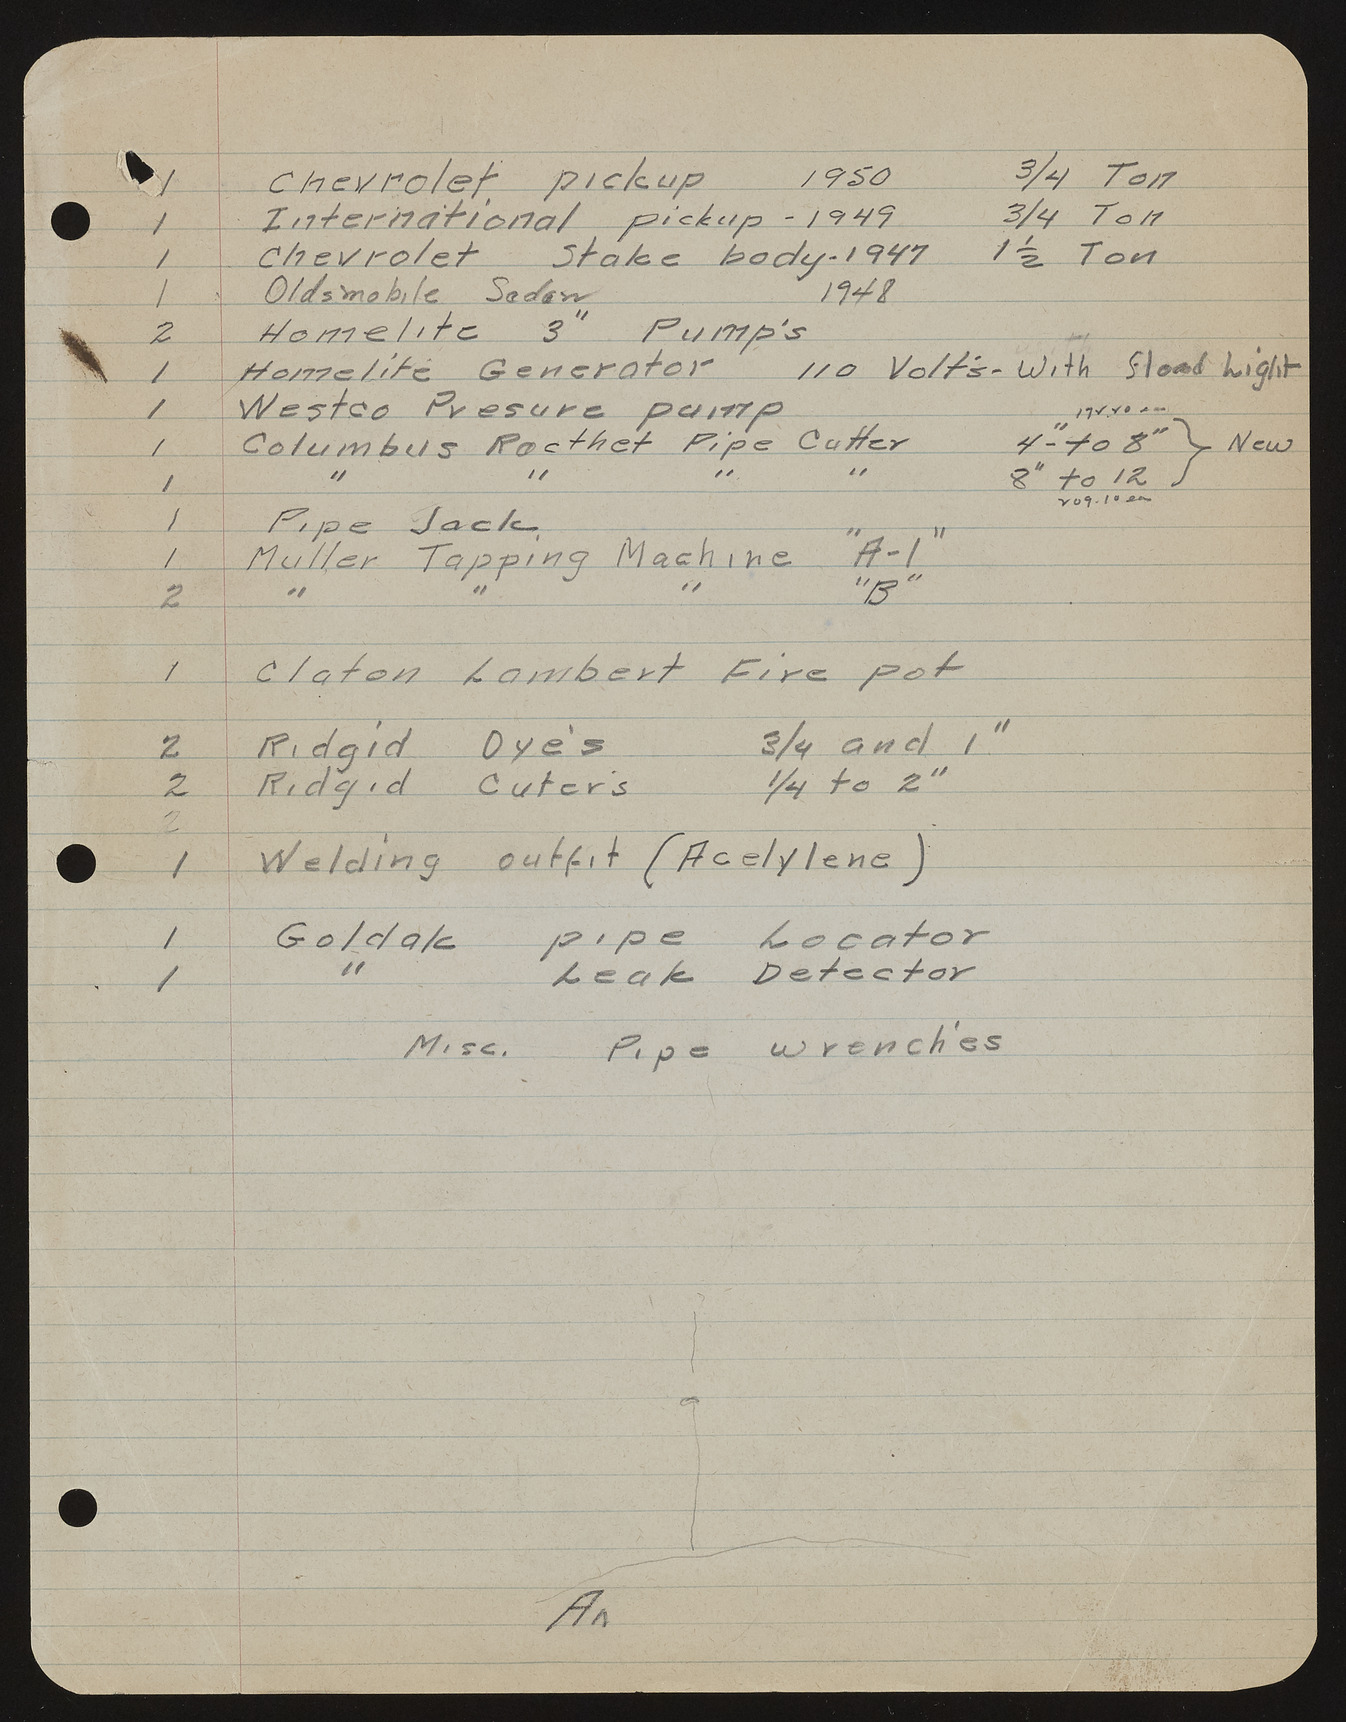 1 Chevrolet pickup 1950 3/4 Ton
1 International pickup - 1949 3/4 Ton
1 Chevrolet Stake body - 1947 1 1/2 Ton
1 Oldsmobile Sedan 1948
2 Homelite 3" Pump's
1 Homelite Generator 110 Volt's - With flood Light
1 Westco Presure pump
1 Columbus Rocthet Pipe Cutter 4"- to 8" } New
1 " " " " 8" to 12
209.10 ea
1 Pipe Jack
1 Muller Tapping Machine "A-1"
2 " " " "B"
1 Claton Lambert Fire pot
2 Ridgid Dye's 3/4 and 1"
2 Ridgid Cuter's 1/4 to 2"
2
1 Welding outfit (Acelylene)
1 Goldak pipe Locator
1 " Leak Detector
Misc. Pipe wrench'es
An